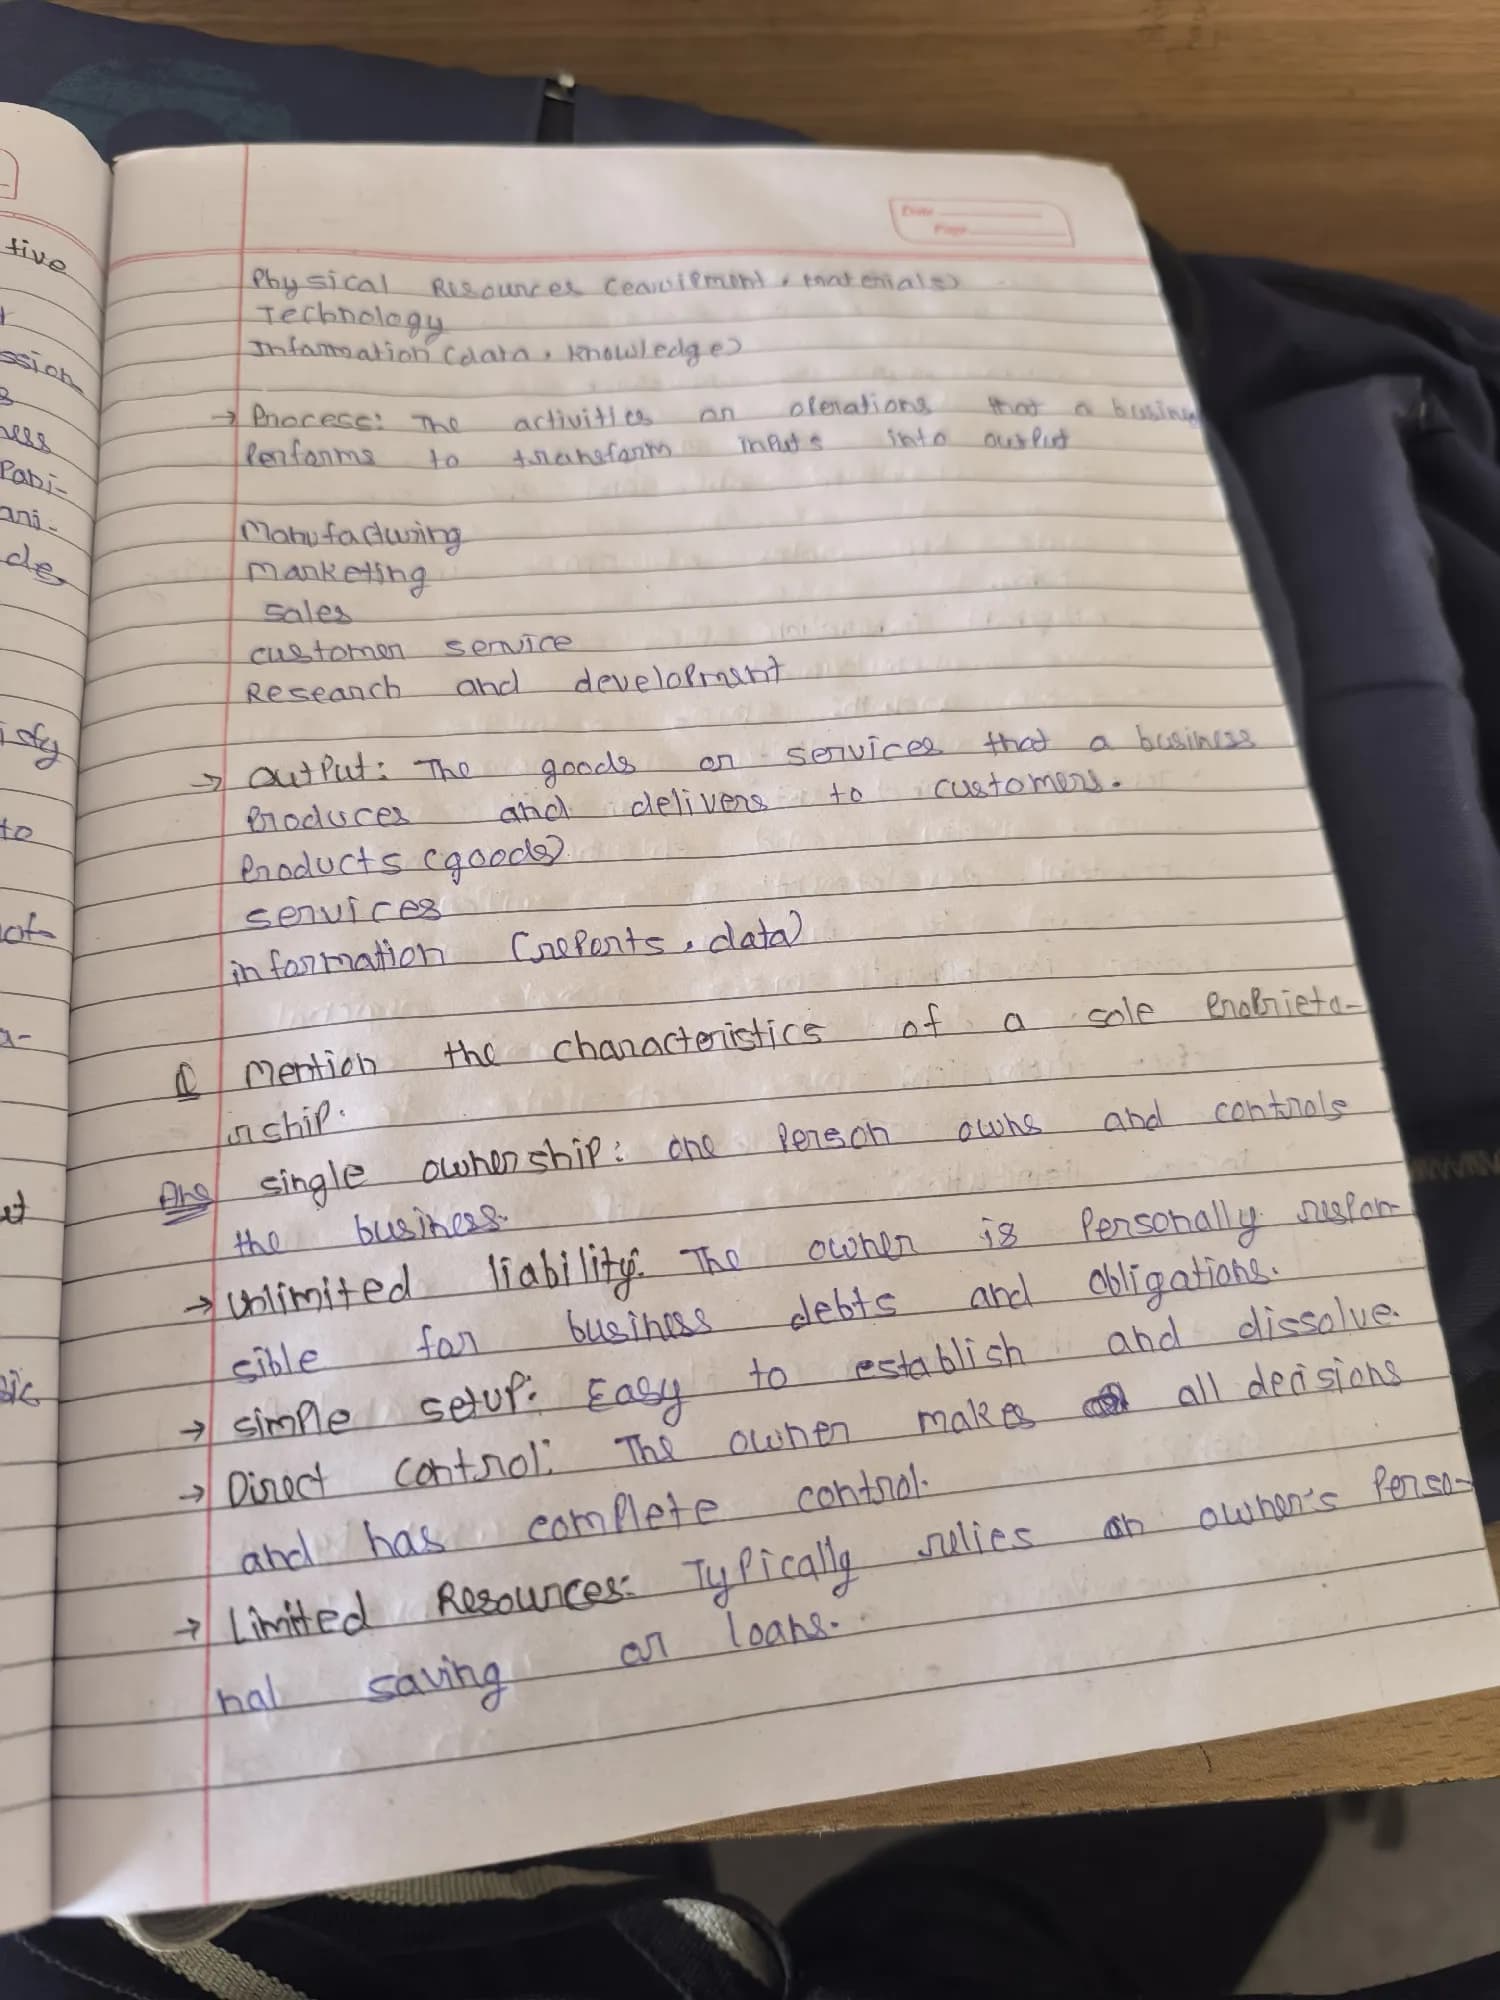 Date
Page
Physical Resources (equipment, materials)
Technology
Information (data, knowledge)
→ Process: The activities or operations that a busines
Performs to transform inputs into output
Manufacturing
Marketing
Sales
customer service
Research and development
→ output: The goods or services that a business
Produces and delivers to customers.
Products (goods)
services
information (reports, data)
Q Mention the characteristics of a sole Proprieta-
rship.
Ans single ownership: one Person owns and controls
the business.
→ Unlimited liability: The owner is Personally respon
sible for business debts and obligations.
→ simple setup: Easy to establish and dissolve.
→ Direct control: The owner makes all decisions
and has complete control.
→ Limited Resources: Typically relies on owner's Perso-
nal saving or loans.
tive
ssion
ness
Pani-
ani-
de
isfy
to
of
a-
et
sic